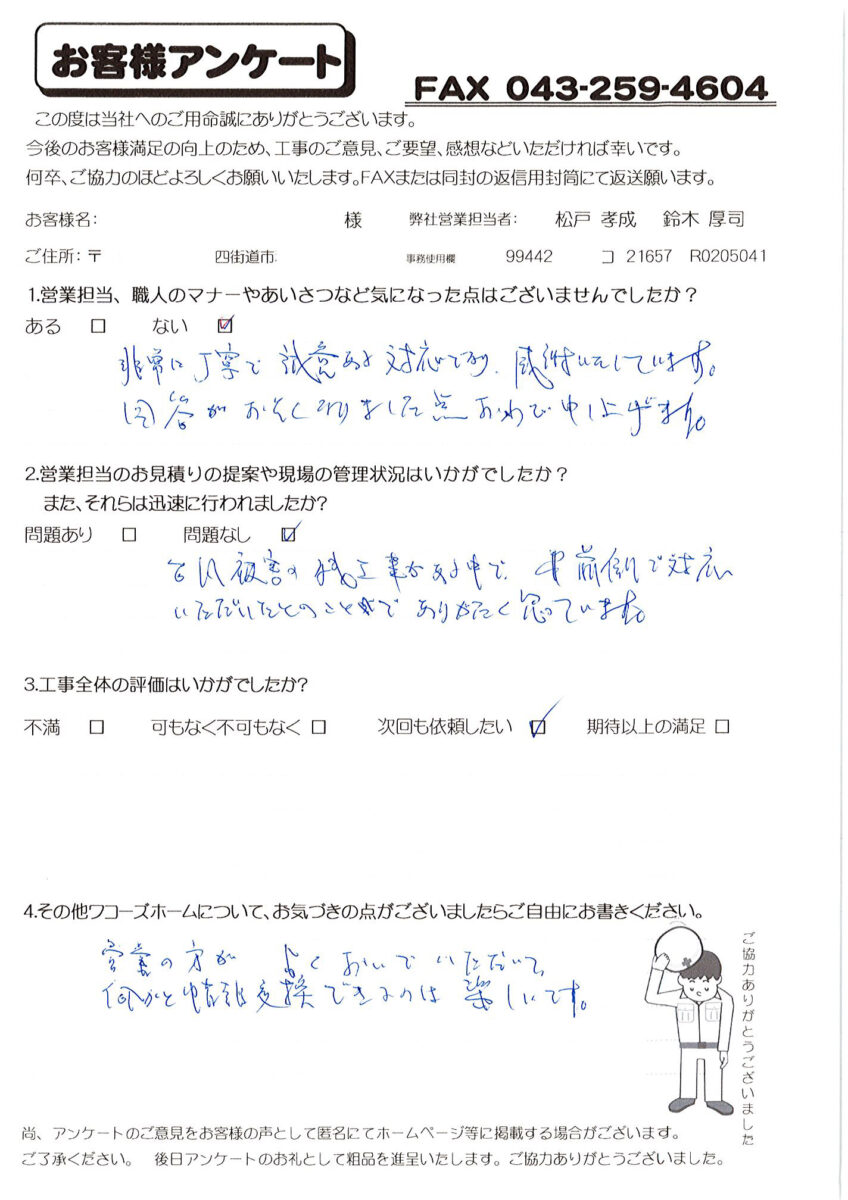 お客様アンケート
FAX 043-259-4604
この度は当社へのご用命誠にありがとうございます。
今後のお客様満足の向上のため、工事のご意見、ご要望、感想などいただければ幸いです。
何卒、ご協力のほどよろしくお願いいたします。FAXまたは同封の返信用封筒にて返送願います。
お客様名: 様 弊社営業担当者: 松戸 孝成 鈴木 厚司
ご住所:〒 四街道市 事務使用欄 99442 コ 21657 R0205041
1.営業担当、職人のマナーやあいさつなど気になった点はございませんでしたか?
ある □ ない ☑
非常に丁寧で誠意ある対応であり、感謝いたしています。
回答がおそくなりました点おわび申し上げます。
2.営業担当のお見積りの提案や現場の管理状況はいかがでしたか?
また、それらは迅速に行われましたか?
問題あり □ 問題なし ☑
台风被害の工事がある中で、前倒しで対応
いただいたとのことでありがたく思っています。
3.工事全体の評価はいかがでしたか?
不満 □ 可もなく不可もなく □ 次回も依頼したい ☑ 期待以上の満足 □
4.その他ワコーズホームについて、お気づきの点がございましたらご自由にお書きください。
営業の方がよくおいでいただいて、
何かと情報交換できるのは楽しいです。
ご協力ありがとうございました
尚、アンケートのご意見をお客様の声として匿名にてホームページ等に掲載する場合がございます。
ご了承ください。 後日アンケートのお礼として粗品を進呈いたします。ご協力ありがとうございました。